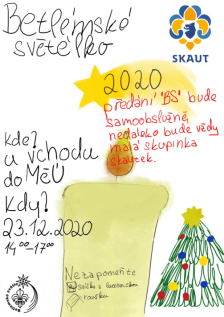 Betlémské
světélko
SKAUT
2020
předání "BS" bude
samoobslužné,
nedaleko bude vždy
malá skupinka
skautek.
kde?
u vchodu
do MěÚ
Kdy?
23.12.2020
14⁰⁰-17⁰⁰
Nezapomeňte
svíčku s lucernou
roušku